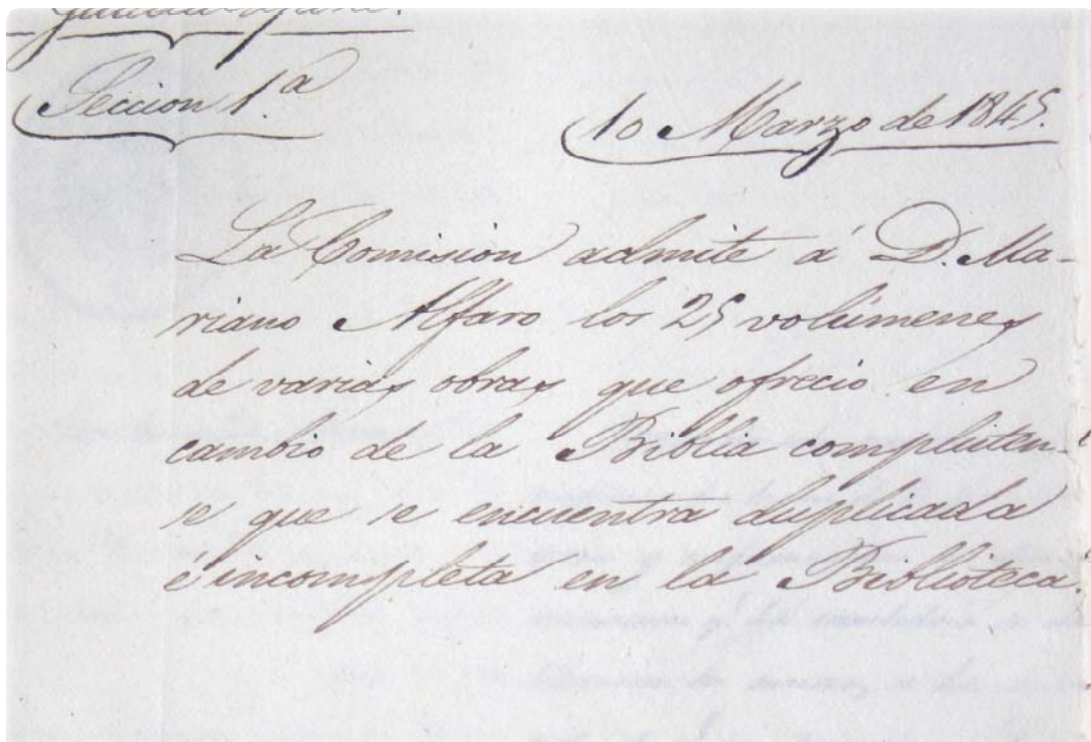 Seccion 1.ª
10 Marzo de 1845.
La Comision admite á D. Ma-
riano Alfaro los 25 volúmenes
de varias obras que ofrecio en
cambio de la Biblia compluten-
se que se encuentra duplicada
é incompleta en la Biblioteca.